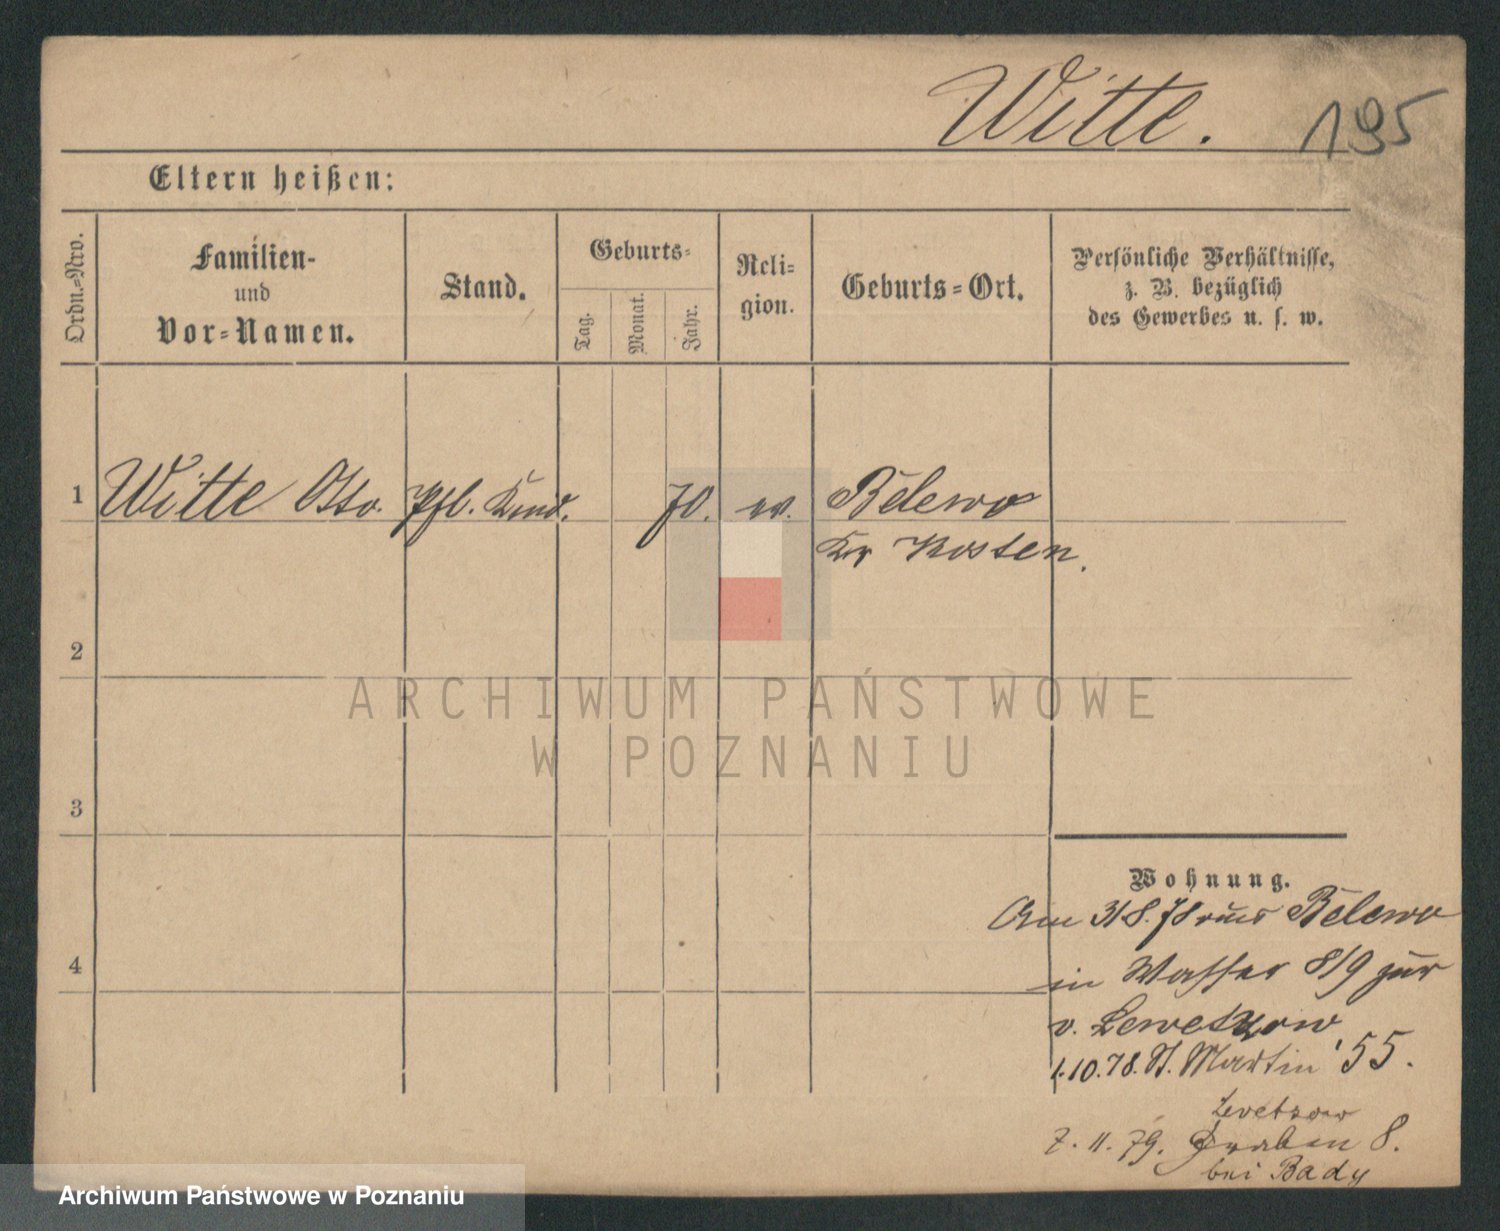 Witte. 195
Eltern heißen:
Ordn.=Nro.
Familien-
und
Vor=Namen.
Stand.
Geburts=
Tag.
Monat.
Jahr.
Reli=
gion.
Geburts=Ort.
Persönliche Verhältnisse,
z. B. bezüglich
des Gewerbes u. s. w.
1 Witte Otto. Pfl. Kind. 70. ev. Belewo
Kr Kosten.
2
ARCHIWUM PAŃSTWOWE
W POZNANIU
3
Wohnung.
Am 31 8. 78 aus Belewo
in Wasser 8/9 zur
v. Lewetzow
1.10.78. St. Martin 55.
Levetzow
7. 11. 79. Graben 8.
bei Bady
4
Archiwum Państwowe w Poznaniu